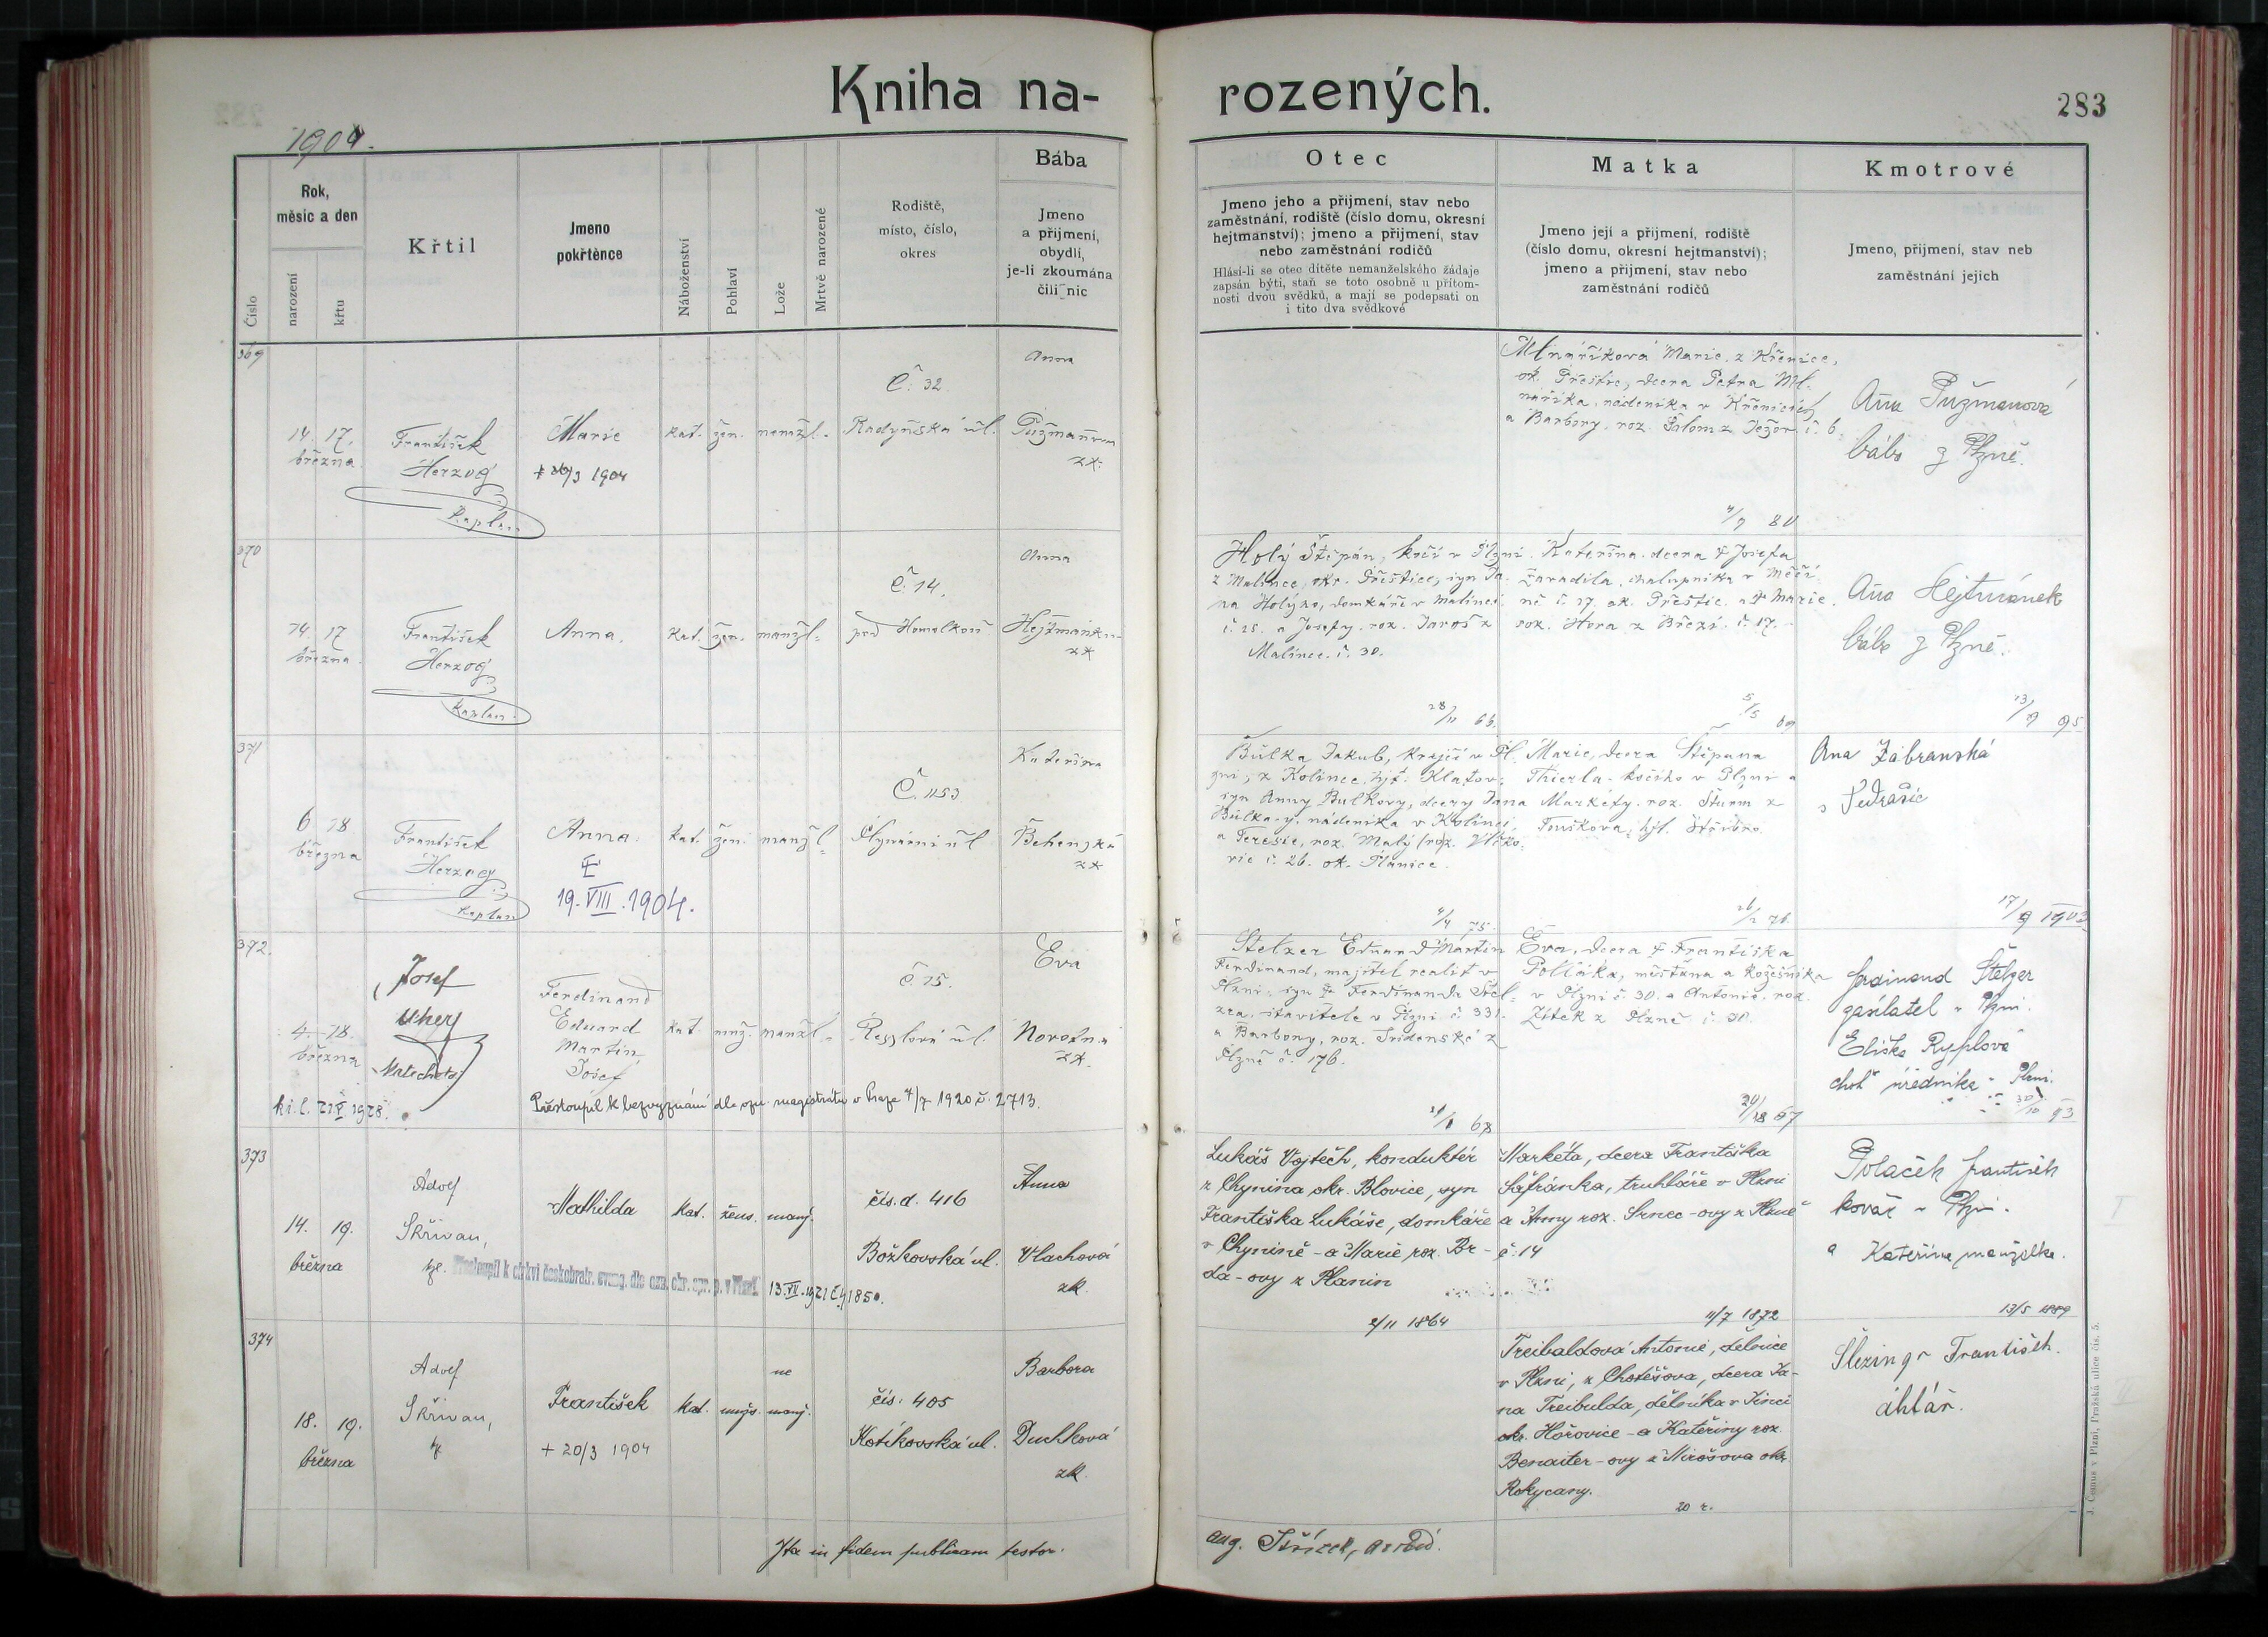 Kniha na-
rozených.
283
1904.
Číslo
Rok,
měsíc a den
narození
křtu
Křtil
Jmeno
pokřtěnce
Náboženství
Pohlaví
Lože
Mrtvě narozené
Rodiště,
místo, číslo,
okres
Bába
Jmeno
a přijmení,
obydlí,
je-li zkoumána
čili nic
Otec
Jmeno jeho a přijmení, stav nebo
zaměstnání, rodiště (číslo domu, okresní
hejtmanství); jmeno a přijmení, stav
nebo zaměstnání rodičů
Hlásí-li se otec dítěte nemanželského žádaje
zapsán býti, staň se toto osobně u přítom-
nosti dvou svědků, a mají se podepsati on
i tito dva svědkové
Matka
Jmeno její a přijmení, rodiště
(číslo domu, okresní hejtmanství);
jmeno a přijmení, stav nebo
zaměstnání rodičů
Kmotrové
Jmeno, přijmení, stav neb
zaměstnání jejich
369
14. 17.
března
František
Herzog
Kaplan
Marie
+ 1904
kat. žen. nemžl.
Č. 32.
Radyňská ul.
Anna
Pužmanova
zk.
Mlnaříková Marie, z Křenice,
ok. Přeštice, dcera Petra Ml-
naříka, nádeníka v Křenicích
a Barbory, roz. Šalom z Ježov. č. 6.
4/7 80
Ana Pužmanová
bába z Plzně.
370
14. 17
března
František
Herzog
Kaplan
Anna.
kat. žen. manžl.
Č. 14.
pod Homolkou
Anna
zk
Holý Štěpán, kočí v Plzni
z Malince, okr. Přeštice, syn Ja-
na Holýho, domkáře v Malinci
č. 25. a Josefy, roz. Jaroš z
Malince č. 30.
28/11 66.
Kateřina, dcera + Josefa
Zavadila, chalupníka v Měčí-
ně č. 17. ok. Přeštic. a + Marie
roz. Hora z Březí č. 17.
5/5 69
Ana Hejtmánek
bába z Plzně.
13/9 95
371
6. 18.
března
František
Herzog
Kaplan
Anna.
19. VIII. 1904.
kat. žen. manžl.
Č. 1153
Plynární ul
Kateřina
Behenská
zk
Bulka Jakub, krejčí v Pl-
zni, z Kolince, hjt. Klatov.
syn Anny Bulkovy, dcery Jana
Bulka, nádeníka v Kolinci
a Terezie, roz. Malý
č. 26. ok. Planice.
4/4 75.
Marie, dcera Štěpana
Thierla, kočího v Plzni a
Markéty, roz. Šturm z
Touškova, hjt. Stříbro.
26/2 76.
Ana Zábranská
17/9 1902
372.
4. 18.
března
Josef
Uher
katecheta
Ferdinand
Eduard
Martin
Josef
kat. muž. manžl.
č. 15.
Resslova ul.
Eva
Novotná
zk.
k.l. 21/V 1928.
Přestoupil k bezvyznání dle ozn. magistrátu v Praze 4/7 1920 č. 2713.
Stelzer Eduard Martin
Ferdinand, majitel realit v
Plzni, syn + Ferdinanda Stel-
zra, stavitele v Plzni č. 331.
a Barbory, roz. Tridenské z
Plzně č. 176.
Eva, dcera + Františka
Polláka, měšťana a kožešníka
v Plzni č. 30. a Antonie, roz.
Zítek z Plzně č. 30.
Ferdinand Stelzer
v Plzni
Eliška Ryplová
choť úředníka v Plzni.
30/10 93
373
14. 19.
března
Adolf
Skřivan,
Mathilda
kat. žens. manž.
čís. d. 416
Božkovská ul.
Anna
Vlachová
zk.
Přestoupil k církvi českobratr. evang. dle ozn. okr. spr. p. v Plzni
13. VII. 1921 č. 41850.
Lukáš Vojtěch, konduktér
z Chynína okr. Blovice, syn
Františka Lukáše, domkáře
v Chyníně - a Marie roz. Br-
da-ovy z Planin
2/11 1864
Markéta, dcera Františka
Šafránka, truhláře v Plzni
a Anny roz. Srnec-ovy z Plzně
č. 14
11/7 1872
Polaček František
kovář v Plzni.
a Kateřina manželka.
13/5 1889
374
18. 19.
března
Adolf
Skřivan,
František
+ 20/3 1904
kat. mužs. ne
manž.
čís: 405
Kotíkovská ul.
Barbora
Duchková
zk.
Treibaldova Antonie, dělnice
v Plzni, z Chotěšova, dcera Ja-
na Treibalda, dělníka v Jinci
okr. Hořovice - a Kateřiny roz.
Benaiter-ovy z Mirošova okr.
Rokycany.
20 r.
Šlezingr František.
Ita in fidem publicam testor.
J. Čemus v Plzni, Pražská ulice čís. 5.